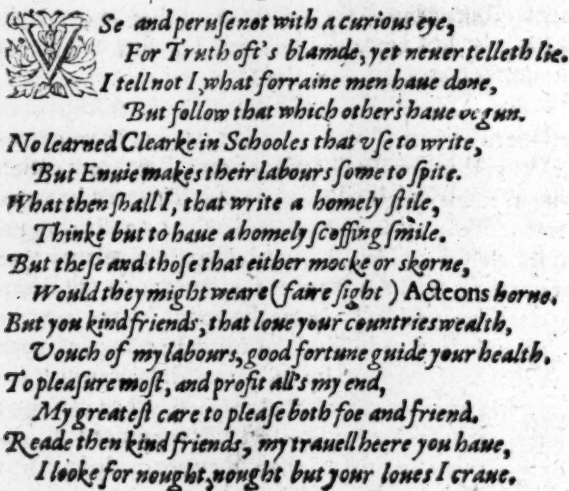 VSe and peruſe not with a curious eye,
For Truth oft's blamde, yet neuer telleth lie.
I tell not I, what forraine men haue done,
But follow that which others haue begun.
No learned Clearke in Schooles that vſe to write,
But Enuie makes their labours ſome to ſpite.
What then ſhall I, that write a homely ſtile,
Thinke but to haue a homely ſcoffing ſmile.
But theſe and thoſe that either mocke or skorne,
Would they might weare (faire ſight) Acteons horne.
But you kind friends, that loue your countries wealth,
Vouch of my labours, good fortune guide your health.
To pleaſure moſt, and profit all's my end,
My greateſt care to pleaſe both foe and friend.
Reade then kind friends, my trauell heere you haue,
I looke for nought, nought but your loues I craue.